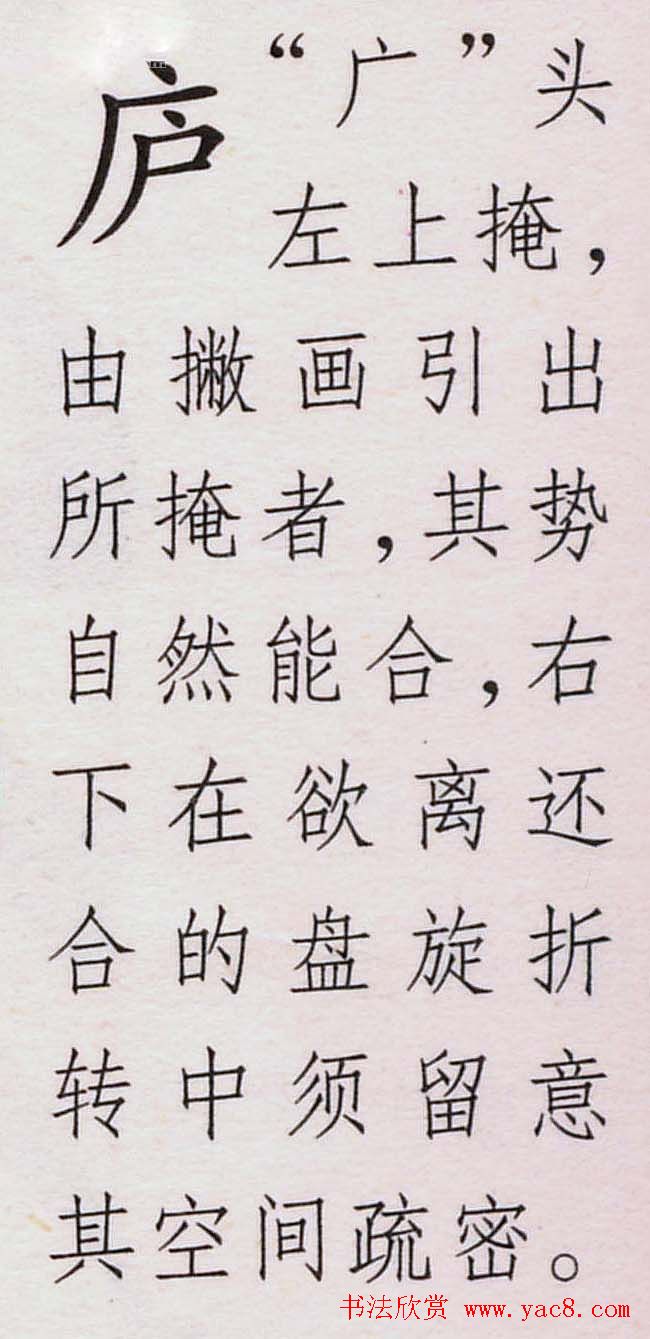 庐
“广”头
左上掩，
由撇画引出
所掩者，其势
自然能合，右
下在欲离还
合的盘旋折
转中须留意
其空间疏密。
书法欣赏 www.yac8.com